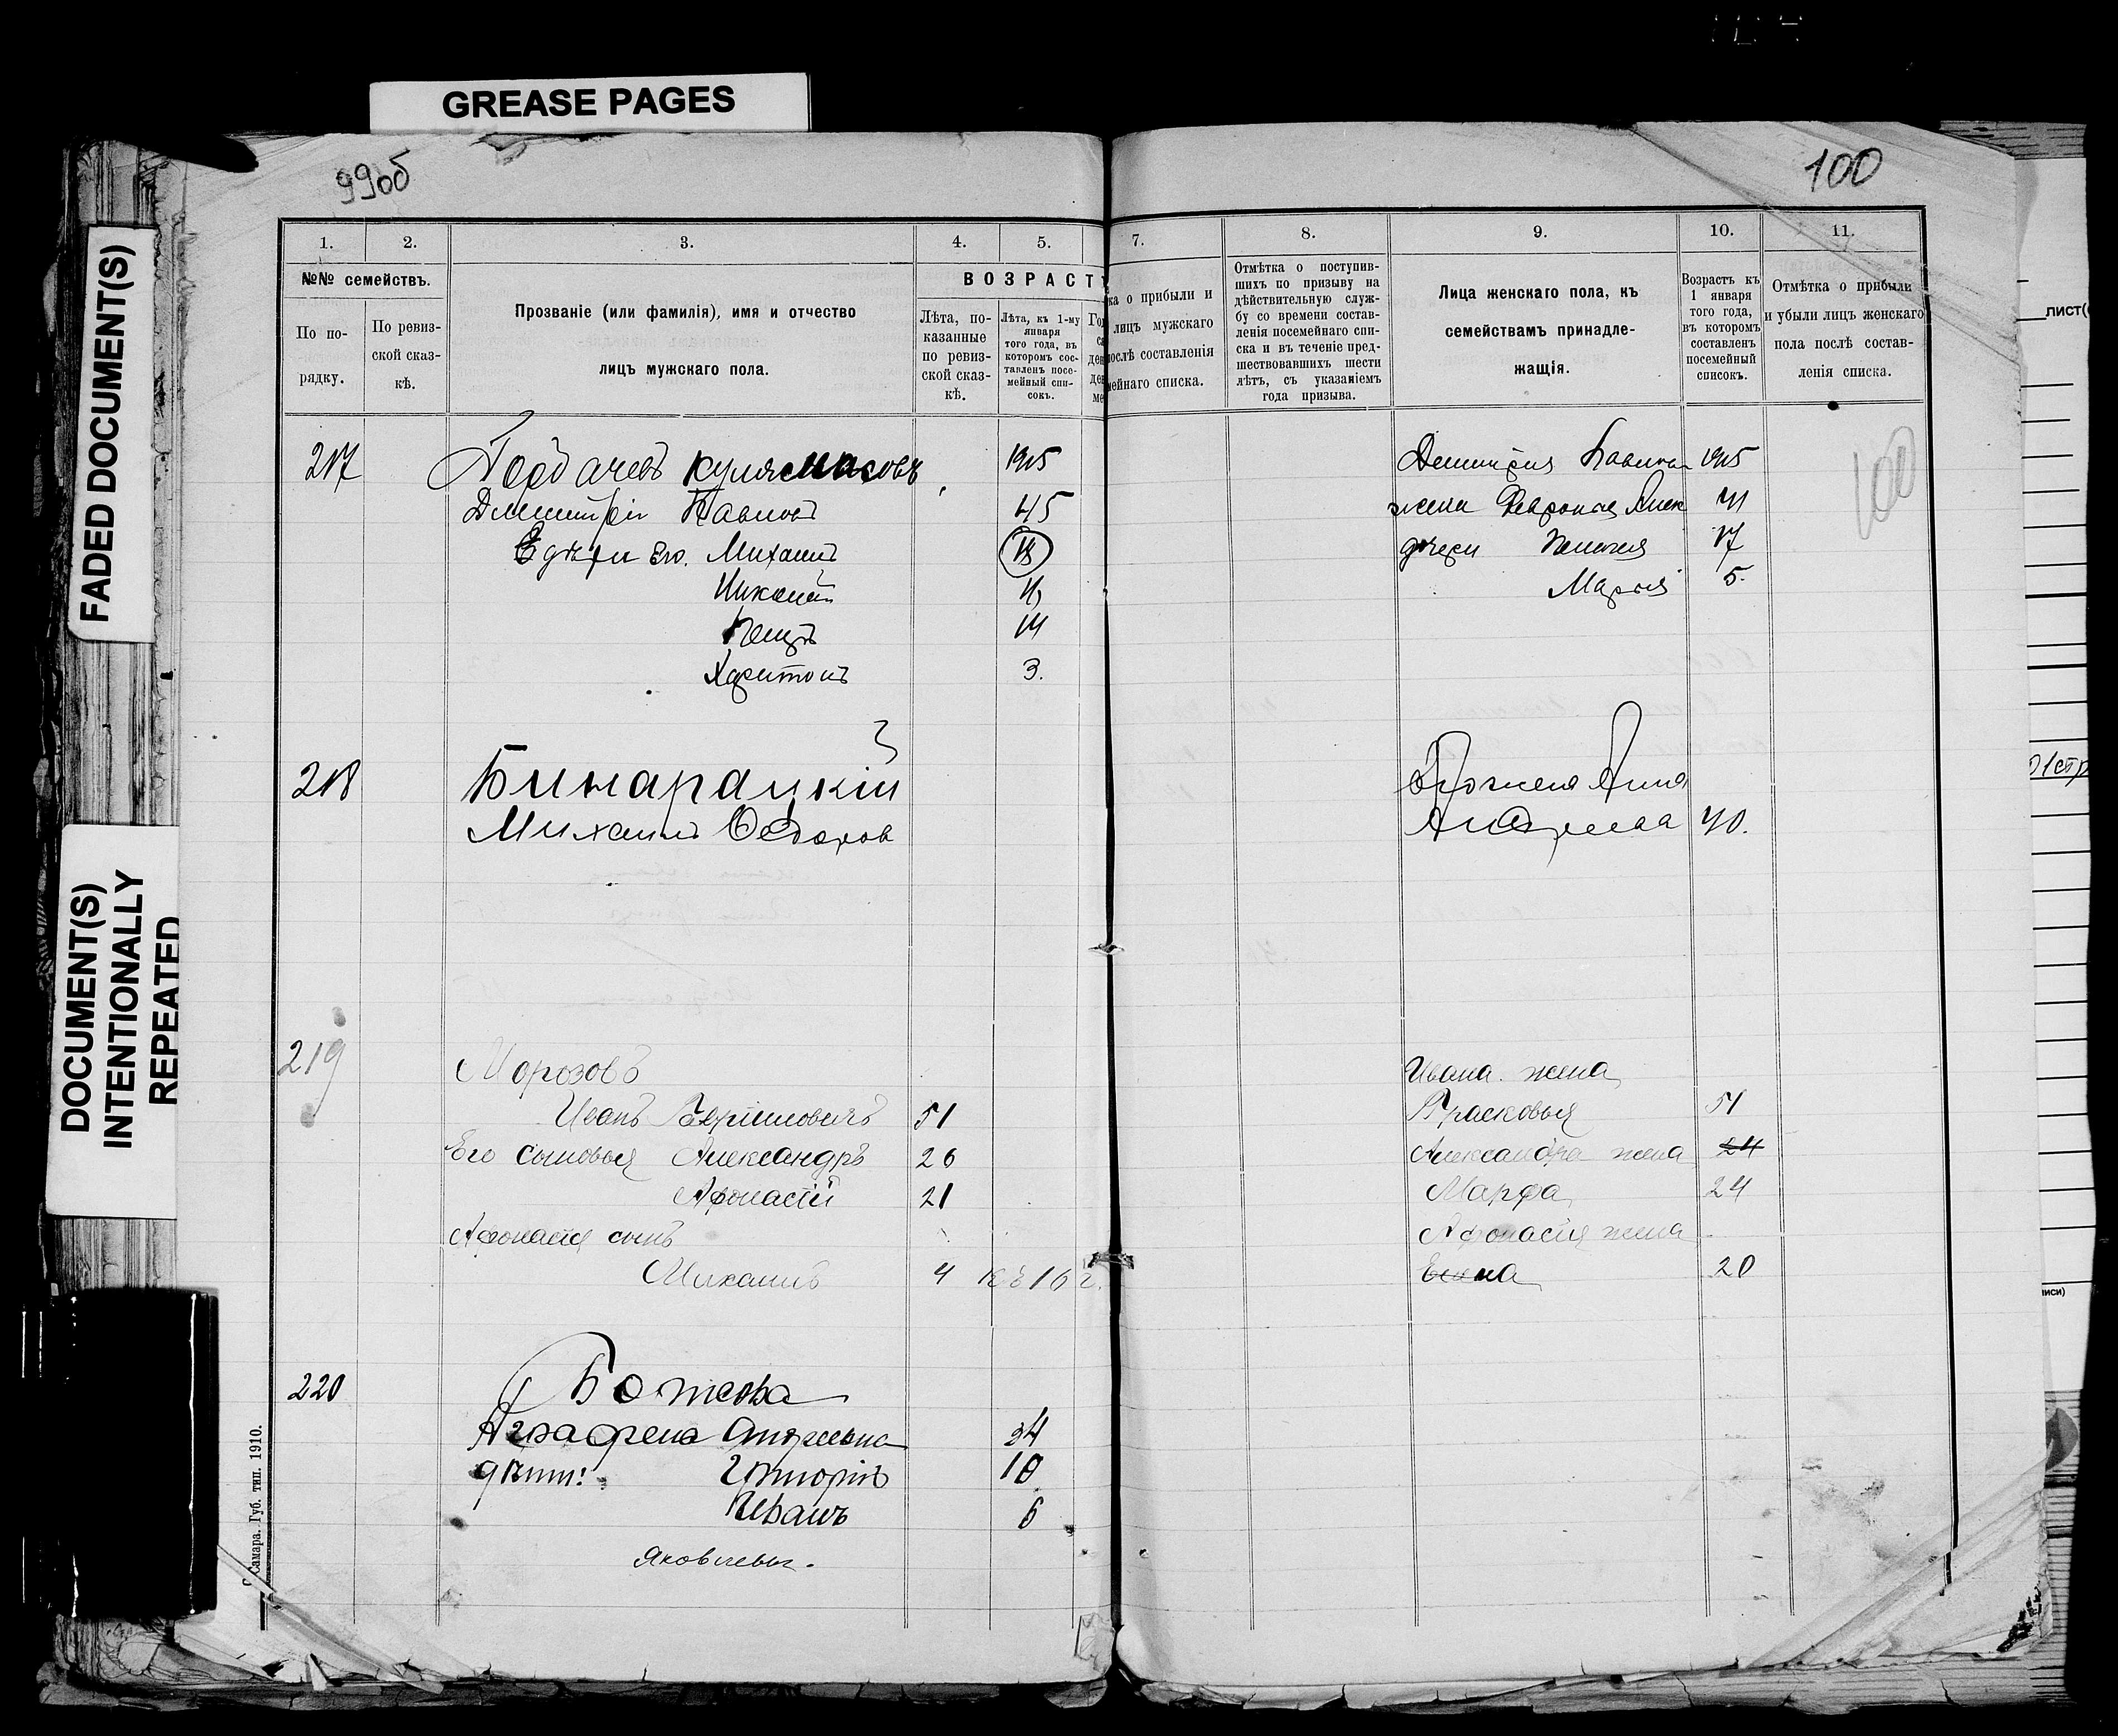 GREASE PAGES
FADED DOCUMENT(S)
DOCUMENT(S)
INTENTIONALLY
REPEATED
99об
1.
2.
3.
4.
5.
№№ семействъ.
По по-
рядку.
По ревиз-
ской сказ-
кѣ.
Прозваніе (или фамилія), имя и отчество
лицъ мужскаго пола.
ВОЗРАСТ
Лѣта, по-
казанные
по ревиз-
ской сказ-
кѣ.
Лѣта, къ 1-му
января
того года, въ
которомъ сос-
тавленъ посе-
мейный спи-
сокъ.
217
Горбачевъ Кулясмасовъ
1915
Дмитрій Павловъ
45
дѣти его. Михаилъ
18
Николай
14
Харитонъ
3.
218
Бинарацкій
Михаилъ Федоров
219
Морозовъ
Иванъ
51
Его сыновья Александръ
26
Афонасій
21
Афонасія сынъ
Михаилъ
4 къ 16 г.
220
Божова
Аграфена Андреевна
34
дѣти:
Григорій
10
Иванъ
6
Яковлевы.
Самара. Губ. тип. 1910.
100
7.
8.
9.
10.
11.
ка о прибыли и
лицъ мужскаго
послѣ составленія
мейнаго списка.
Отмѣтка о поступив-
шихъ по призыву на
дѣйствительную служ-
бу со времени состав-
ленія посемейнаго спи-
ска и въ теченіе пред-
шествовавшихъ шести
лѣтъ, съ указаніемъ
года призыва.
Лица женскаго пола, къ
семействамъ принадле-
жащія.
Возрастъ къ
1 января
того года,
въ которомъ
составленъ
посемейный
списокъ.
Отмѣтка о прибыли
и убыли лицъ женскаго
пола послѣ состав-
ленія списка.
Дмитрія Павлова
1915
жена Февронья Алек
41
дочери
17
Марья
5.
100
Анна
Андреева
40.
Ивана жена
Прасковья
51
Александра жена
24
Марфа
24
Афонасія жена
Елена
20
лист(